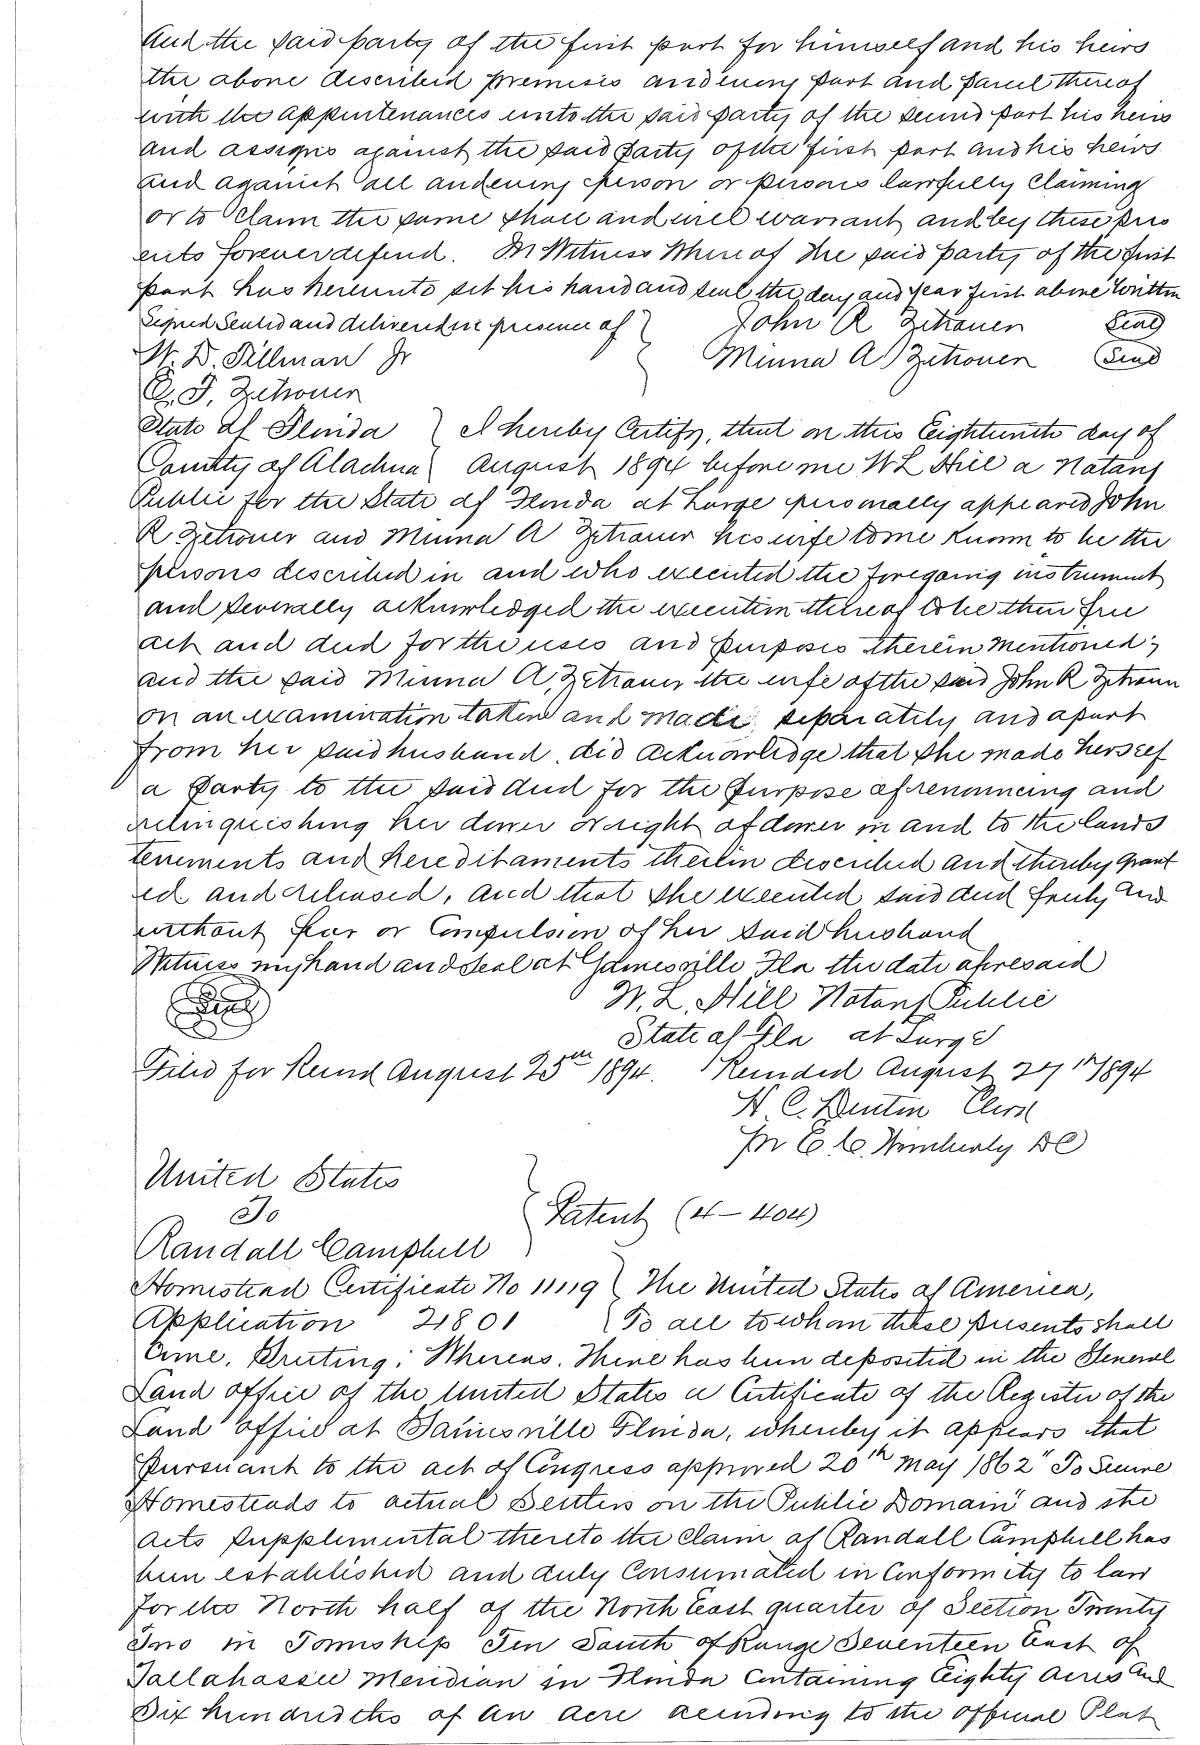 And the said party of the first part for himself and his heirs
the above described premises and every part and parcel thereof
with the appurtenances unto the said party of the second part his heirs
and assigns against the said party of the first part and his heirs
and against all and every person or persons lawfully claiming
or to claim the same shall and will warrant and by these pres
ents forever defend. In Witness Whereof The said party of the first
part has hereunto set his hand and seal the day and year first above written
Signed Sealed and delivered in presence of } John R Zetrouer Seal
W. D. Tillman Jr } Minna A Zetrouer Seal
C. F. Zetrouer
State of Florida } I hereby Certify, that on this Eighteenth day of
County of Alachua } August 1894 before me W L Hill a Notary
Public for the State of Florida at Large personally appeared John
R Zetrouer and Minna A Zetrouer his wife to me known to be the
persons described in and who executed the foregoing instrument
and severally acknowledged the execution thereof to be their free
act and deed for the uses and purposes therein mentioned;
and the said Minna A. Zetrouer the wife of the said John R Zetrouer
on an examination taken and made separately and apart
from her said husband did acknowledge that she made herself
a party to the said deed for the purpose of renouncing and
relinquishing her dower or right of dower in and to the lands
tenements and hereditaments therein described and thereby grant
ed and released, and that she executed said deed freely and
without fear or Compulsion of her said husband
Witness my hand and seal at Gainesville Fla the date aforesaid
Seal W. L. Hill Notary Public
State of Fla at Large
Filed for Record August 25th 1894. Recorded August 27th 1894
H. C. Denton Clerk
pr E. C. Wimberly DC
United States
To } Patent (4-404)
Randall Campbell
Homestead Certificate No 11119 } The United States of America,
Application 21801 } To all to whom these presents shall
Come, Greeting: Whereas. There has been deposited in the General
Land office of the United States a Certificate of the Register of the
Land office at Gainesville Florida, whereby it appears that
Pursuant to the act of Congress approved 20th May 1862 "To Secure
Homesteads to actual Settlers on the Public Domain" and the
acts supplemental thereto the claim of Randall Campbell has
been established and duly Consumated in Conformity to law
for the North half of the North East quarter of Section Twenty
Two in Township Ten South of Range Seventeen East of
Tallahassee Meridian in Florida Containing Eighty acres and
Six hundredths of an acre according to the official Plat